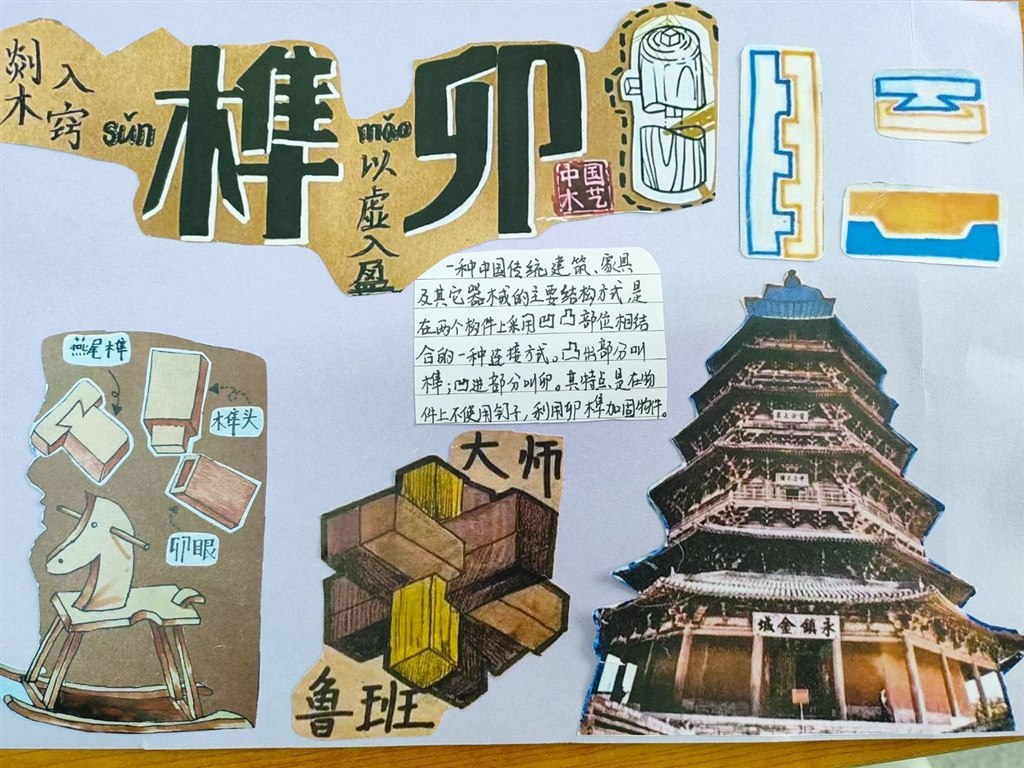 剡木
入窍
sǔn
榫
mǎo
卯
以虚入盈
中国
木艺
一种中国传统建筑、家具
及其它器械的主要结构方式,是
在两个构件上采用凹凸部位相结
合的一种连接方式。凸出部分叫
榫;凹进部分叫卯。其特点是在物
件上不使用钉子,利用卯榫加固物件。
燕尾榫
榫头
卯眼
大师
鲁班
城金鎮永